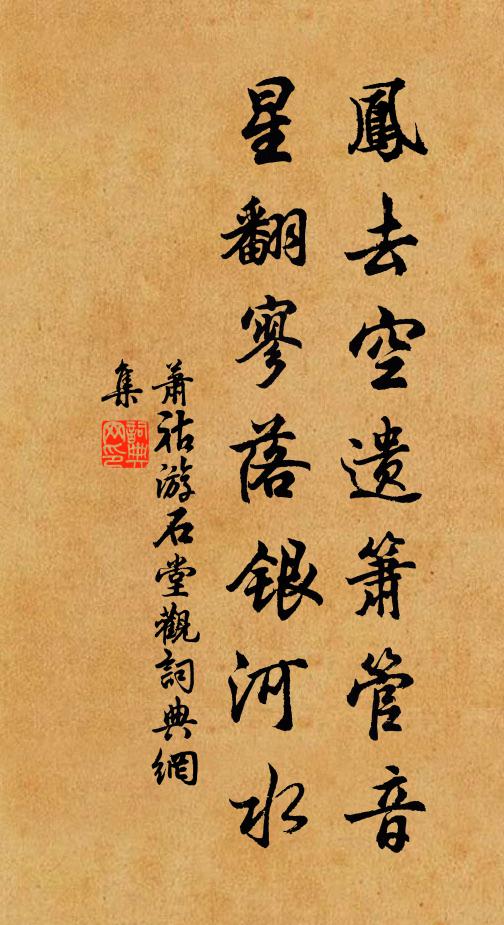 鳳去空遺簫管音
星翻寥落銀河水
蕭祜游石堂觀詞典網
集
詞典網印